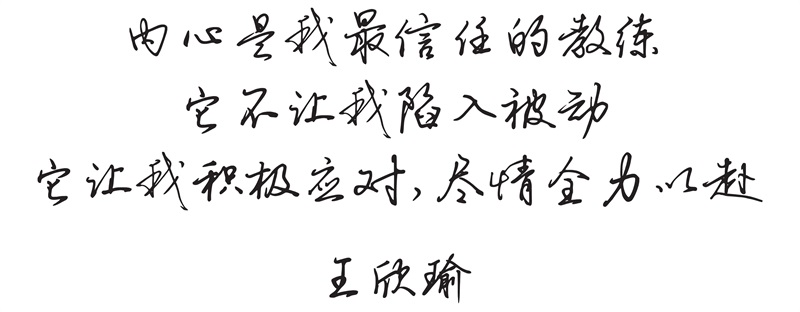 内心是我最信任的教练
它不让我陷入被动
它让我积极应对,尽情全力以赴
王欣瑜